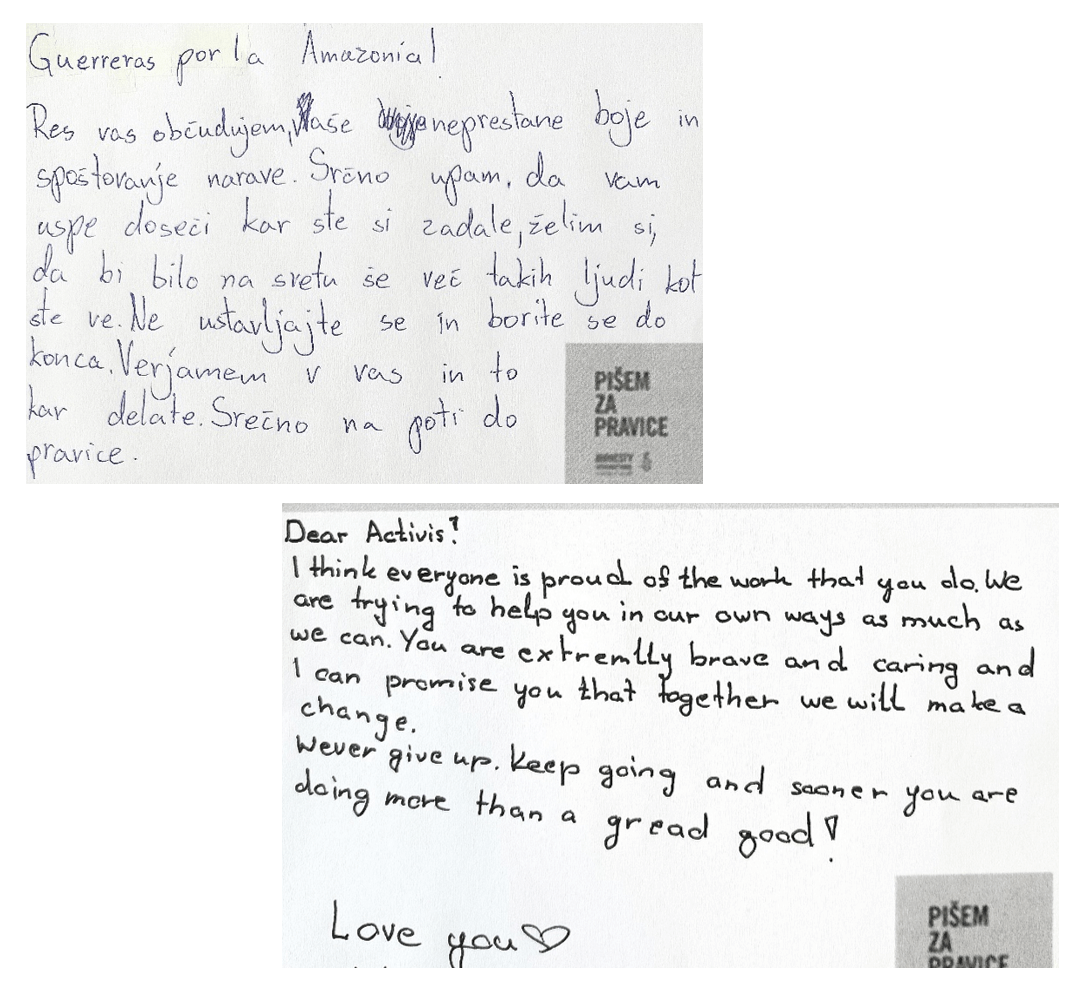 Guerreras por la Amazonia!
Res vas občudujem, Vaše neprestane boje in
spoštovanje narave. Srčno upam, da vam
uspe doseči kar ste si zadale, želim si,
da bi bilo na svetu še več takih ljudi kot
ste ve. Ne ustavljajte se in borite se do
konca. Verjamem v vas in to
kar delate. Srečno na poti do
pravice.
PIŠEM
ZA
PRAVICE
AMNESTY
Dear Activis!
I think everyone is proud of the work that you do. We
are trying to help you in our own ways as much as
we can. You are extremlly brave and caring and
I can promise you that together we will make a
change.
Never give up. Keep going and sooner you are
doing more than a gread good!
Love you
PIŠEM
ZA
PRAVICE